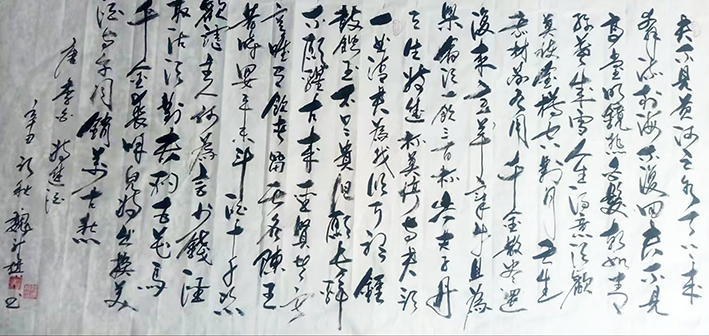 君不見黃河之水天上來
奔流到海不復回君不見
高堂明鏡悲白髮朝如青
絲暮成雪人生得意須歡
莫使金樽空對月天生
我材必有用千金散盡還
復來烹羊宰牛且為
樂會須一飲三百杯岑夫子丹
丘生將進酒杯莫停與君歌
一曲請君為我傾耳聽鐘
鼓饌玉不足貴但願長醉
不願醒古來聖賢皆寂
寞唯有飲者留其名陳王
昔時宴平樂斗酒十千恣
歡謔主人何為言少錢徑
取沽酒對君酌五花馬
千金裘呼兒將出換美
酒與爾同銷萬古愁
唐李白將進酒
辛丑初秋魏